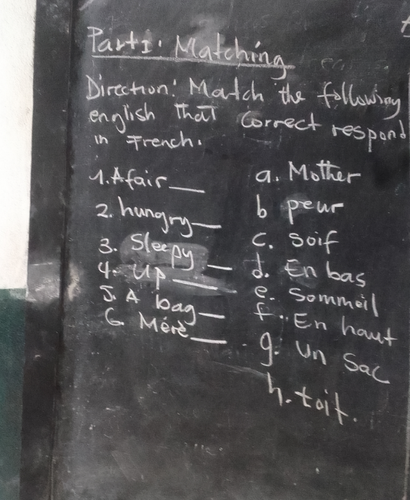 Part I: Matching
Direction: Match the following
english that correct respond
in French.
1. Afair__ a. Mother
2. hungry__ b peur
3. Sleepy__ c. soif
4. Up__ d. En bas
5. A bag__ e. Sommeil
6 Méré__ f. En haut
g. Un Sac
h. toit.